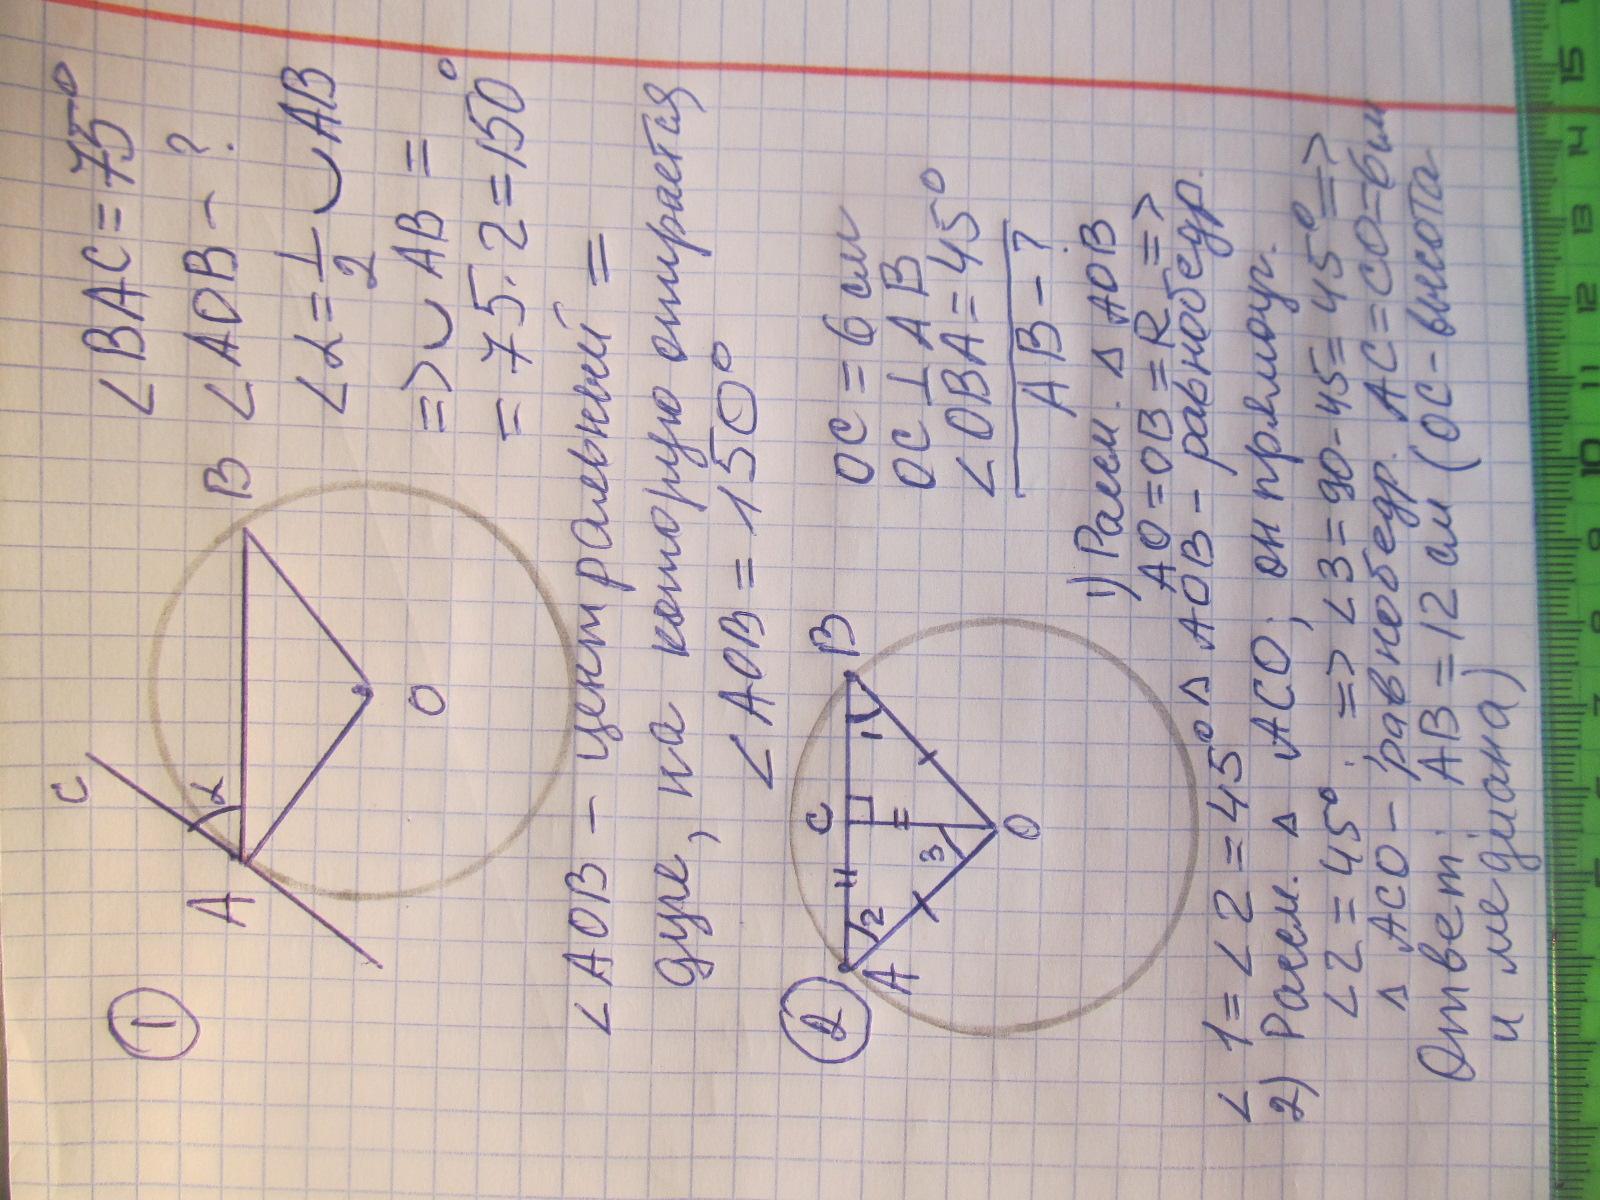 1
∠BAC = 75°
∠AOB - ?
∠α = 1/2 ◡AB
=> ◡AB =
= 75 · 2 = 150°
A
B
C
O
α
∠AOB - центральный =
дуге, на которую опирается
∠AOB = 150°
2
OC = 6 см
OC ⊥ AB
∠OBA = 45°
AB - ?
A
B
C
O
1
2
3
1) Рассм. △ AOB
AO = OB = R =>
△ AOB - равнобедр.
∠1 = ∠2 = 45°
2) Рассм. △ ACO; он прямоуг.
∠2 = 45°. => ∠3 = 90-45 = 45° =>
△ ACO - равнобедр. AC = CO = 6 см
Ответ: AB = 12 см (OC - высота
и медіана)
15
14
13
12
11
10
9
8
7